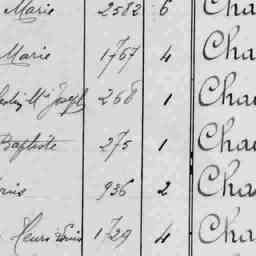 Marie 2582 6 Cha
Marie 1767 4 Cha
Joseph 268 1 Cha
Baptiste 275 1 Cha
936 2 Cha
Henri Louis 1729 4 Cha